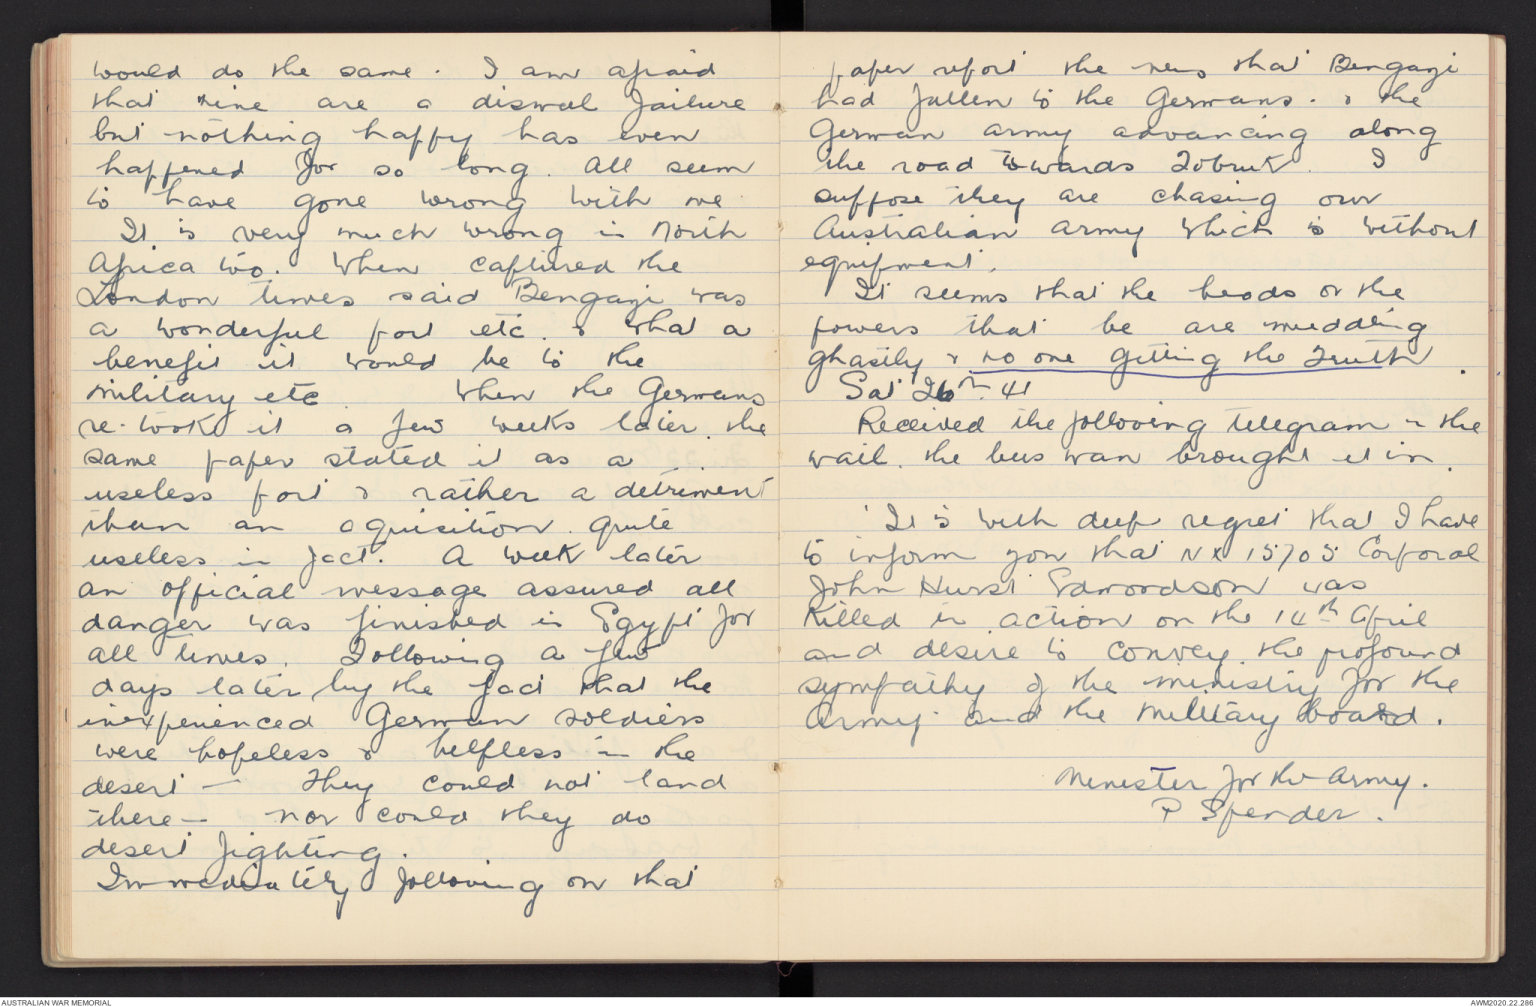 would do the same. I am afraid
that mine are a dismal failure
but nothing happy has even
happened for so long. All seem
to have gone wrong with me
It is very much wrong in North
Africa too. When captured the
London times said Bengazi was
a wonderful port etc & what a
benefit it would be to the
military etc When the Germans
re-took it a few weeks later. the
same paper stated it as a
useless port & rather a detriment
than an aquisition. Quite
useless in fact. A week later
an official message assured all
danger was finished in Egypt for
all times. Following a few
days later by the fact that the
inexperienced German soldiers
were hopeless & helpless in the
desert - They could not land
there - nor could they do
desert fighting.
Immediately following on that
paper report the news that Bengazi
had fallen to the Germans. & the
German army advancing along
the road towards Tobruk. I
suppose they are chasing our
Australian Army which is without
equipment.
It seems that the heads or the
powers that be are muddling
ghastily & no one getting the Truth.
Sat 26th. 41
Received the following telegram in the
mail. the bus man brought it in.
'It is with deep regret that I have
to inform you that NX 15705 Corporal
John Hurst Edmondson was
Killed in action on the 14th April
and desire to convey the profound
sympathy of the ministry for the
Army. and the Military board.
Minister for the Army.
P Spender.
AUSTRALIAN WAR MEMORIAL
AWM2020.22.286